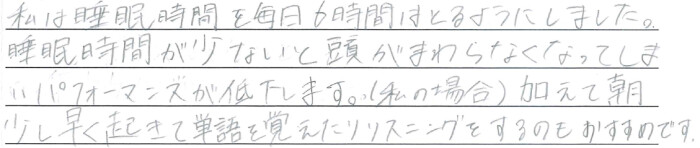 私は睡眠時間を毎日6時間はとるようにしました。
睡眠時間が少ないと頭がまわらなくなってしま
いパフォーマンスが低下します。(私の場合)加えて朝
少し早く起きて単語を覚えたりリスニングをするのもおすすめです.